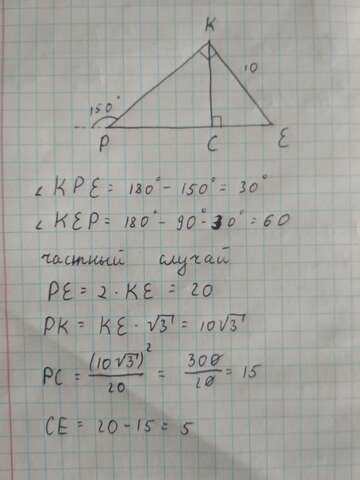 K
10
150°
P C E
∠ KPE = 180° - 150° = 30°
∠ KEP = 180° - 90° - 30° = 60
частный случай
PE = 2 · KE = 20
PK = KE · √3 = 10√3
PC = (10√3)² / 20 = 300 / 20 = 15
CE = 20 - 15 = 5